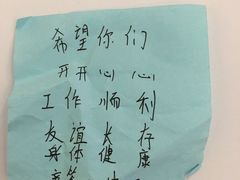 希望你们
开开心心
工作顺利
友谊长存
身体健康